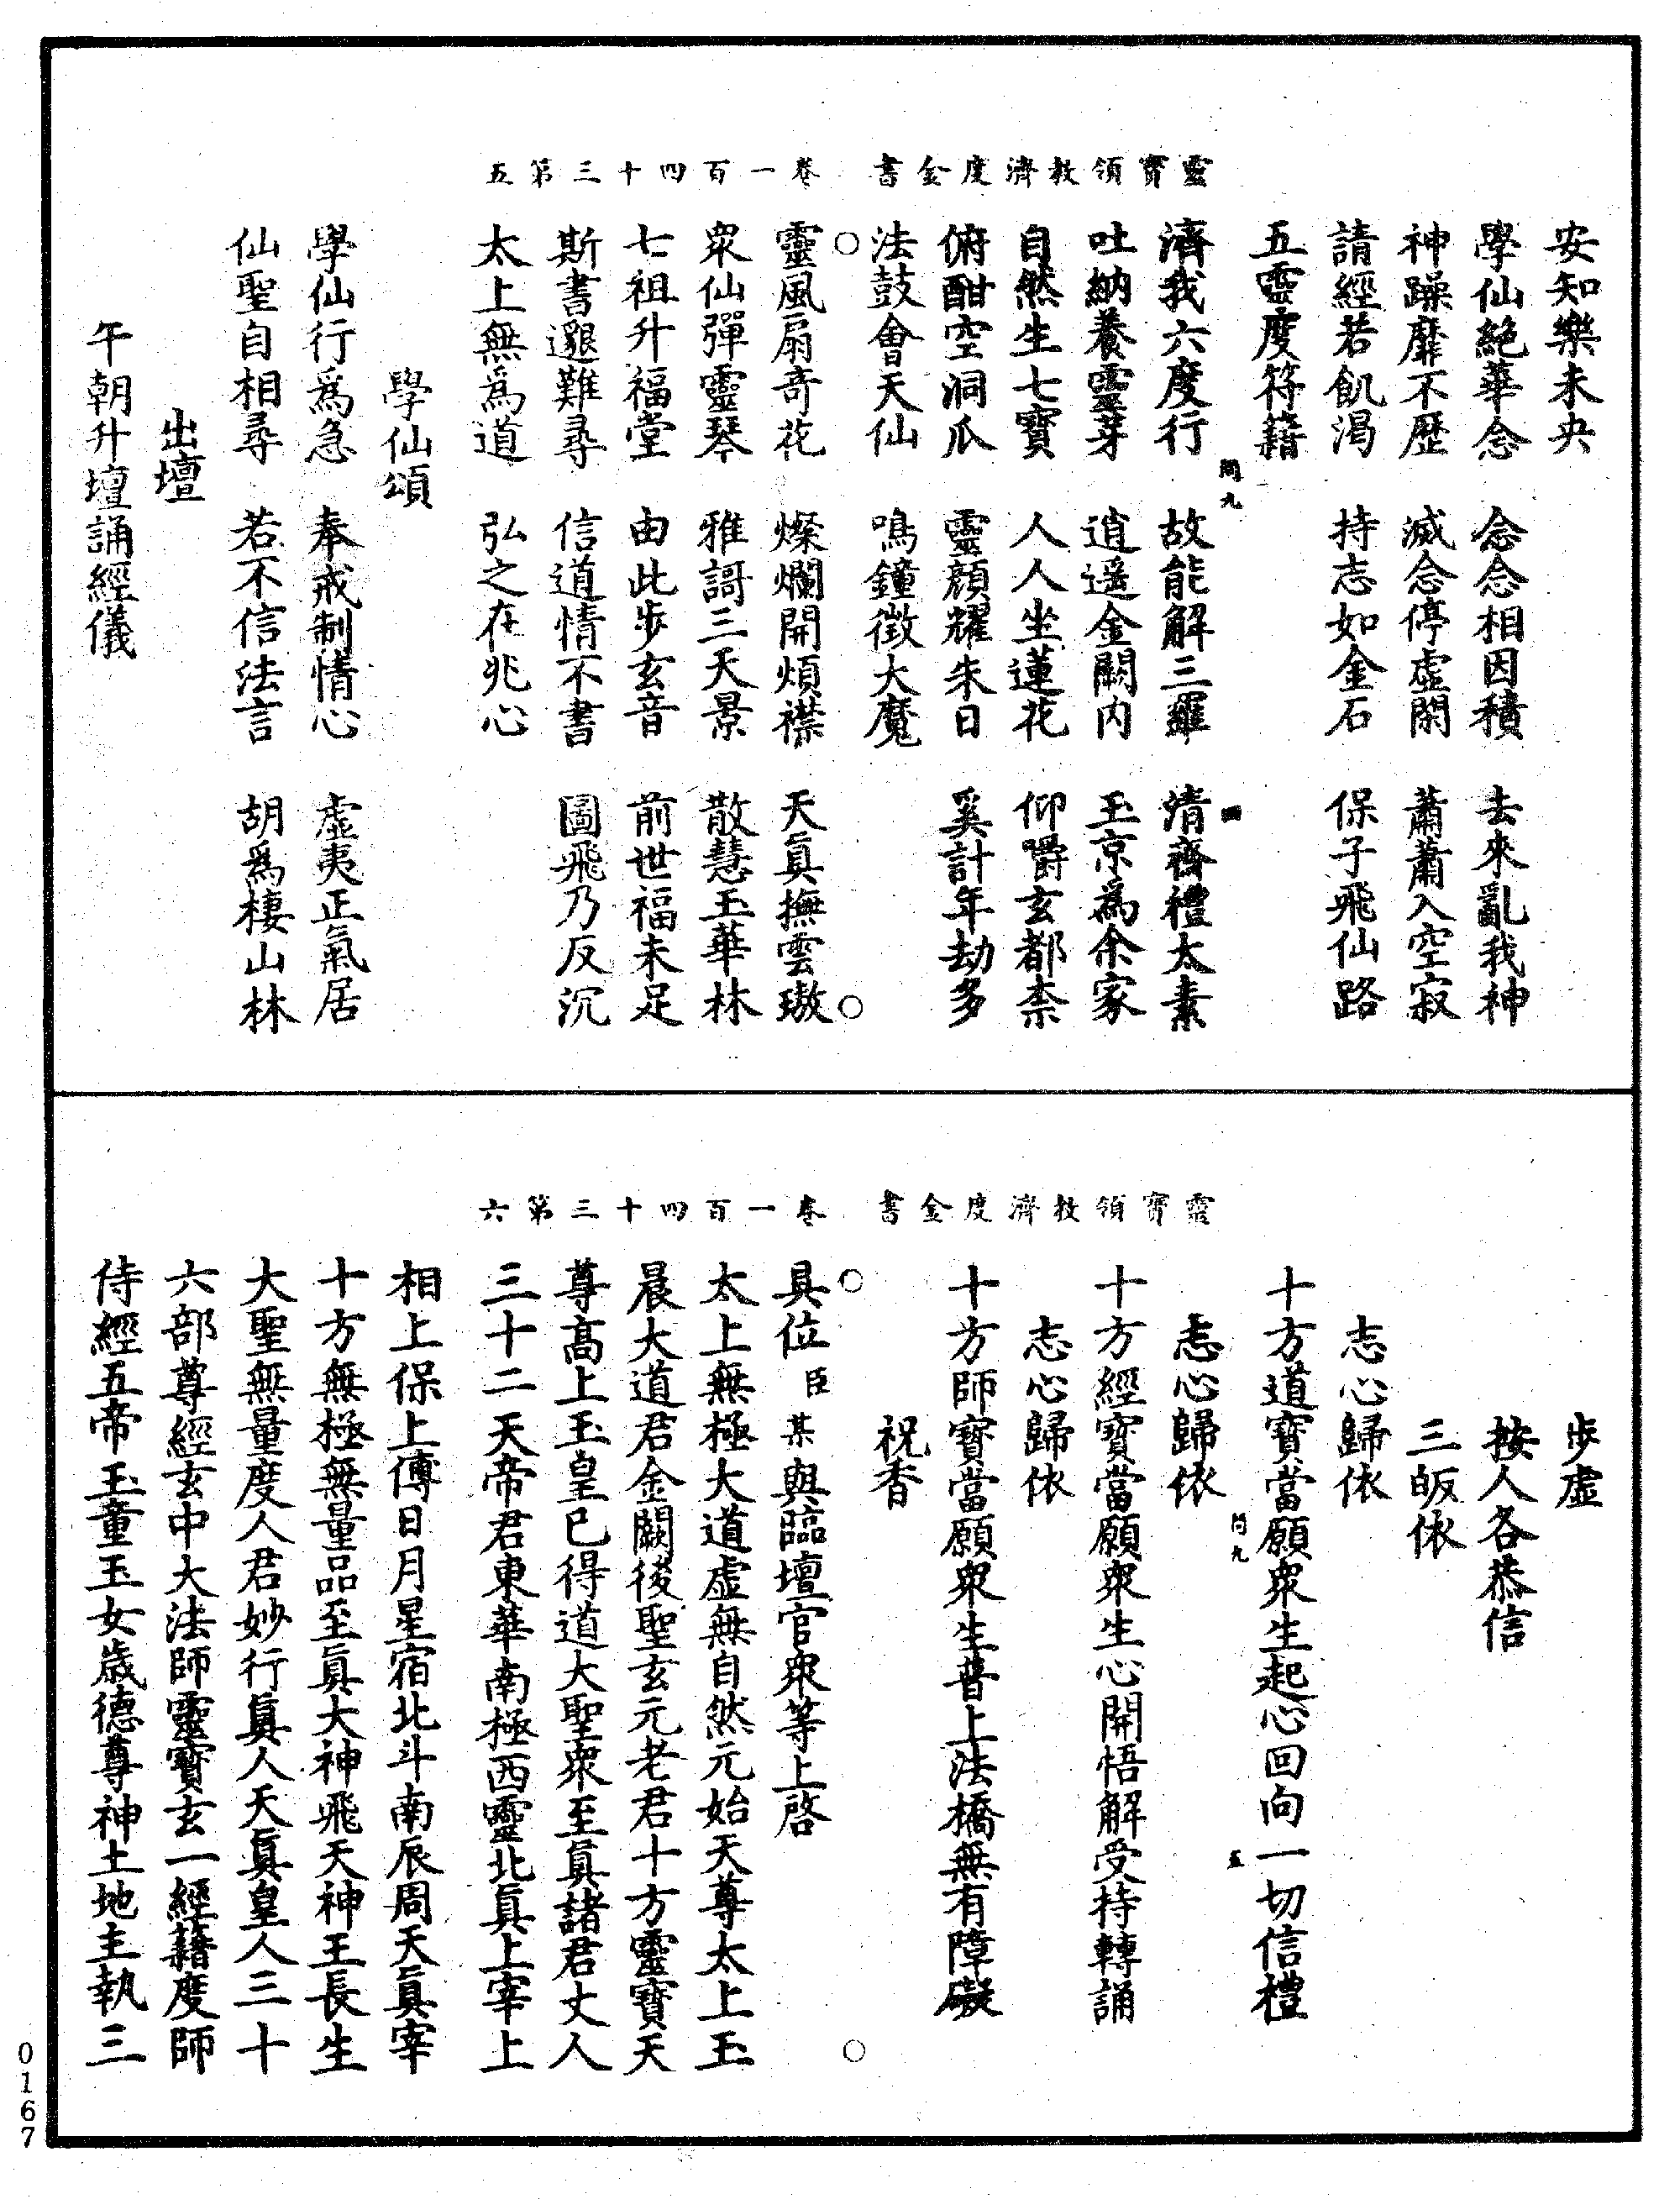 安知樂未央
學仙絕華念　念念相因積　去來亂我神
神躁靡不歷　滅念停虛閑　蕭蕭入空寂
請經若飢渴　持志如金石　保子飛仙路
五靈度符籍
問九
四
濟我六度行　故能解三羅　清齋禮太素
吐納養靈芽　逍遥金闕內　玉京爲余家
自然生七寶　人人坐蓮花　仰嚼玄都柰
俯酣空洞瓜　靈顏耀朱日　奚計年劫多
法鼓會天仙　鳴鐘徵大魔
靈寶領教濟度金書　卷一百四十三第五
靈風扇奇花　燦爛開煩襟　天眞撫雲璈
衆仙彈靈琴　雅謌三天景　散慧玉華林
七祖升福堂　由此步玄音　前世福未足
斯書邈難尋　信道情不書　圖飛乃反沉
太上無爲道　弘之在兆心
學仙頌
學仙行爲急　奉戒制情心　虛夷正氣居
仙聖自相尋　若不信法言　胡爲棲山林
出壇
午朝升壇誦經儀
步虛
按人各恭信
三皈依
志心歸依
十方道寶當願衆生起心回向一切信禮
問九
五
志心歸依
十方經寶當願衆生心開悟解受持轉誦
志心歸依
十方師寶當願衆生普上法橋無有障礙
祝香
靈寶領教濟度金書　卷一百四十三第六
具位臣某與臨壇官衆等上啓
太上無極大道虛無自然元始天尊太上玉
晨大道君金闕後聖玄元老君十方靈寶天
尊高上玉皇已得道大聖衆至眞諸君丈人
三十二天帝君東華南極西靈北眞上宰上
相上保上傅日月星宿北斗南辰周天眞宰
十方無極無量品至眞大神飛天神王長生
大聖無量度人君妙行眞人天眞皇人三十
六部尊經玄中大法師靈寶玄一經籍度師
侍經五帝玉童玉女歲德尊神土地主執三
0167